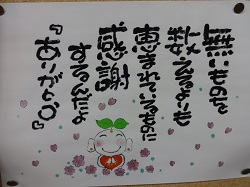 無いものを
数えるよりも
恵まれているものに
感謝
するんだよ
『ありがとう』